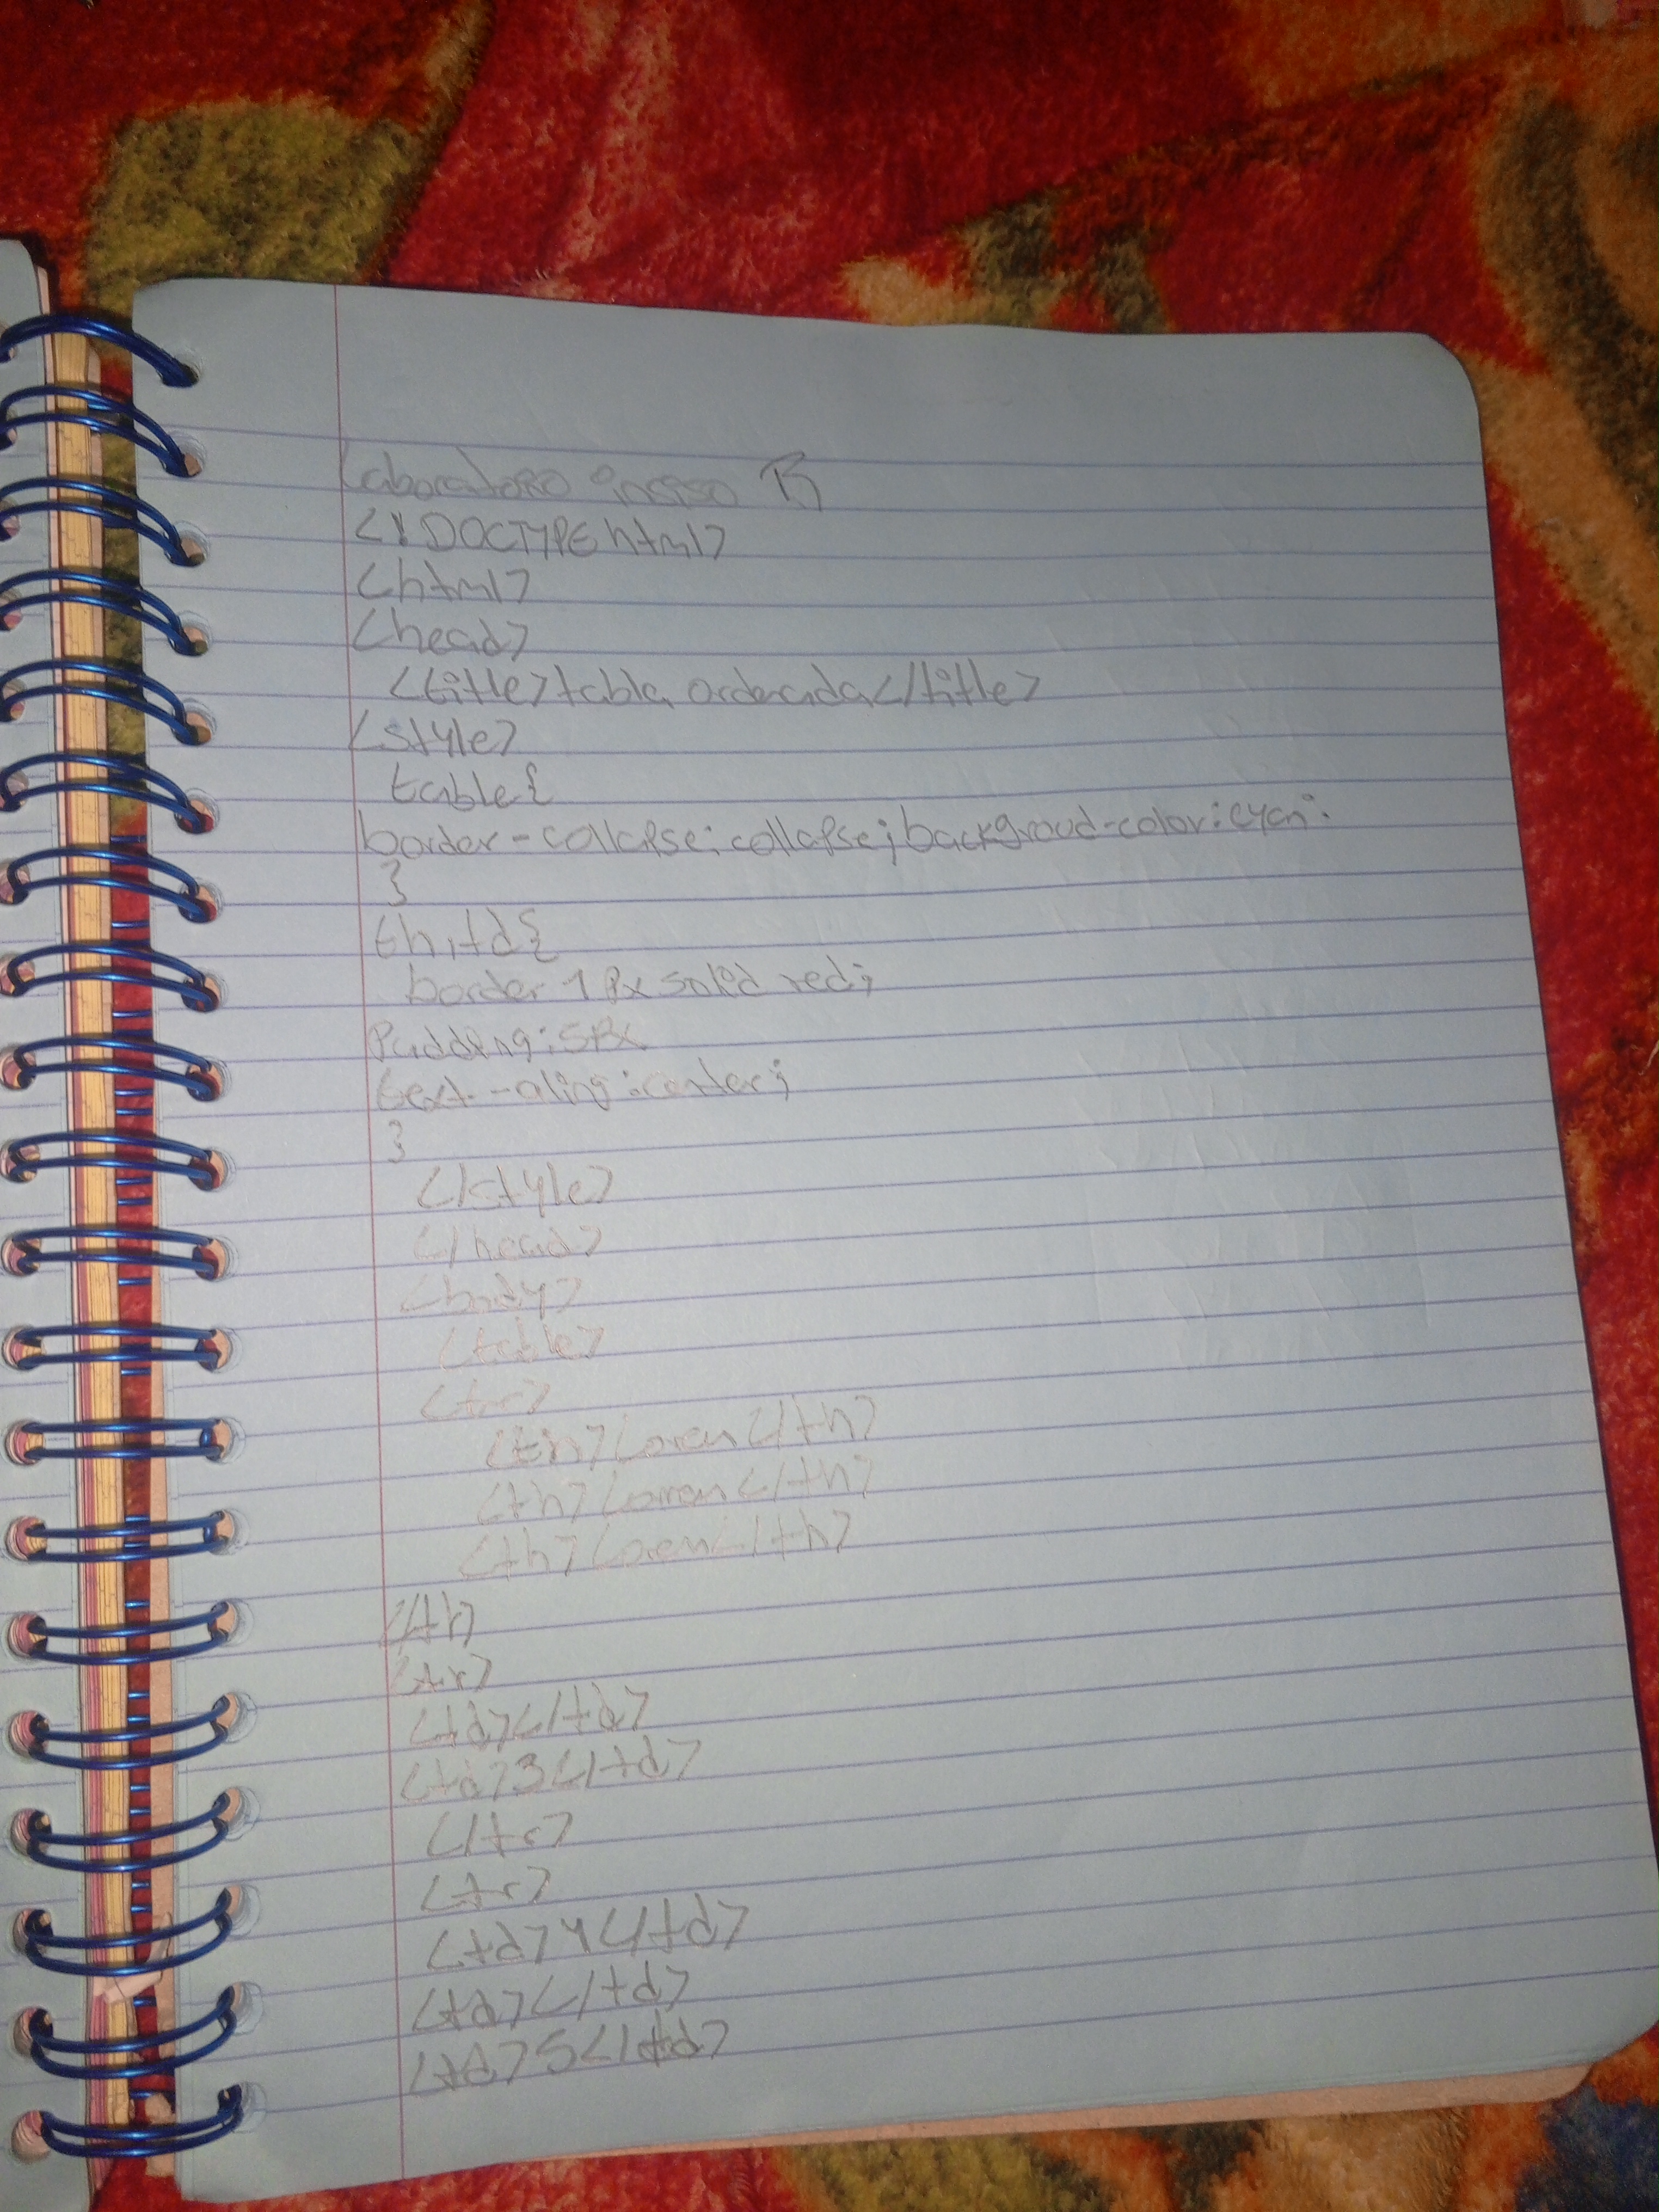 Laboratorio inciso B
<!DOCTYPE html>
<html>
<head>
<title>tabla ordenada</title>
<style>
table{
border-collapse:collapse;backgroud-color:cyan:
}
th,td{
border 1px solid red;
Padding:5Px
text-aling:center;
}
</style>
</head>
<body>
<table>
<tr>
<th>Loren</th>
<th>Loren</th>
<th>Loren</th>
</th>
<tr>
<td></td>
<td>3</td>
</tr>
<tr>
<td>4</td>
<td></td>
<td>5</td>